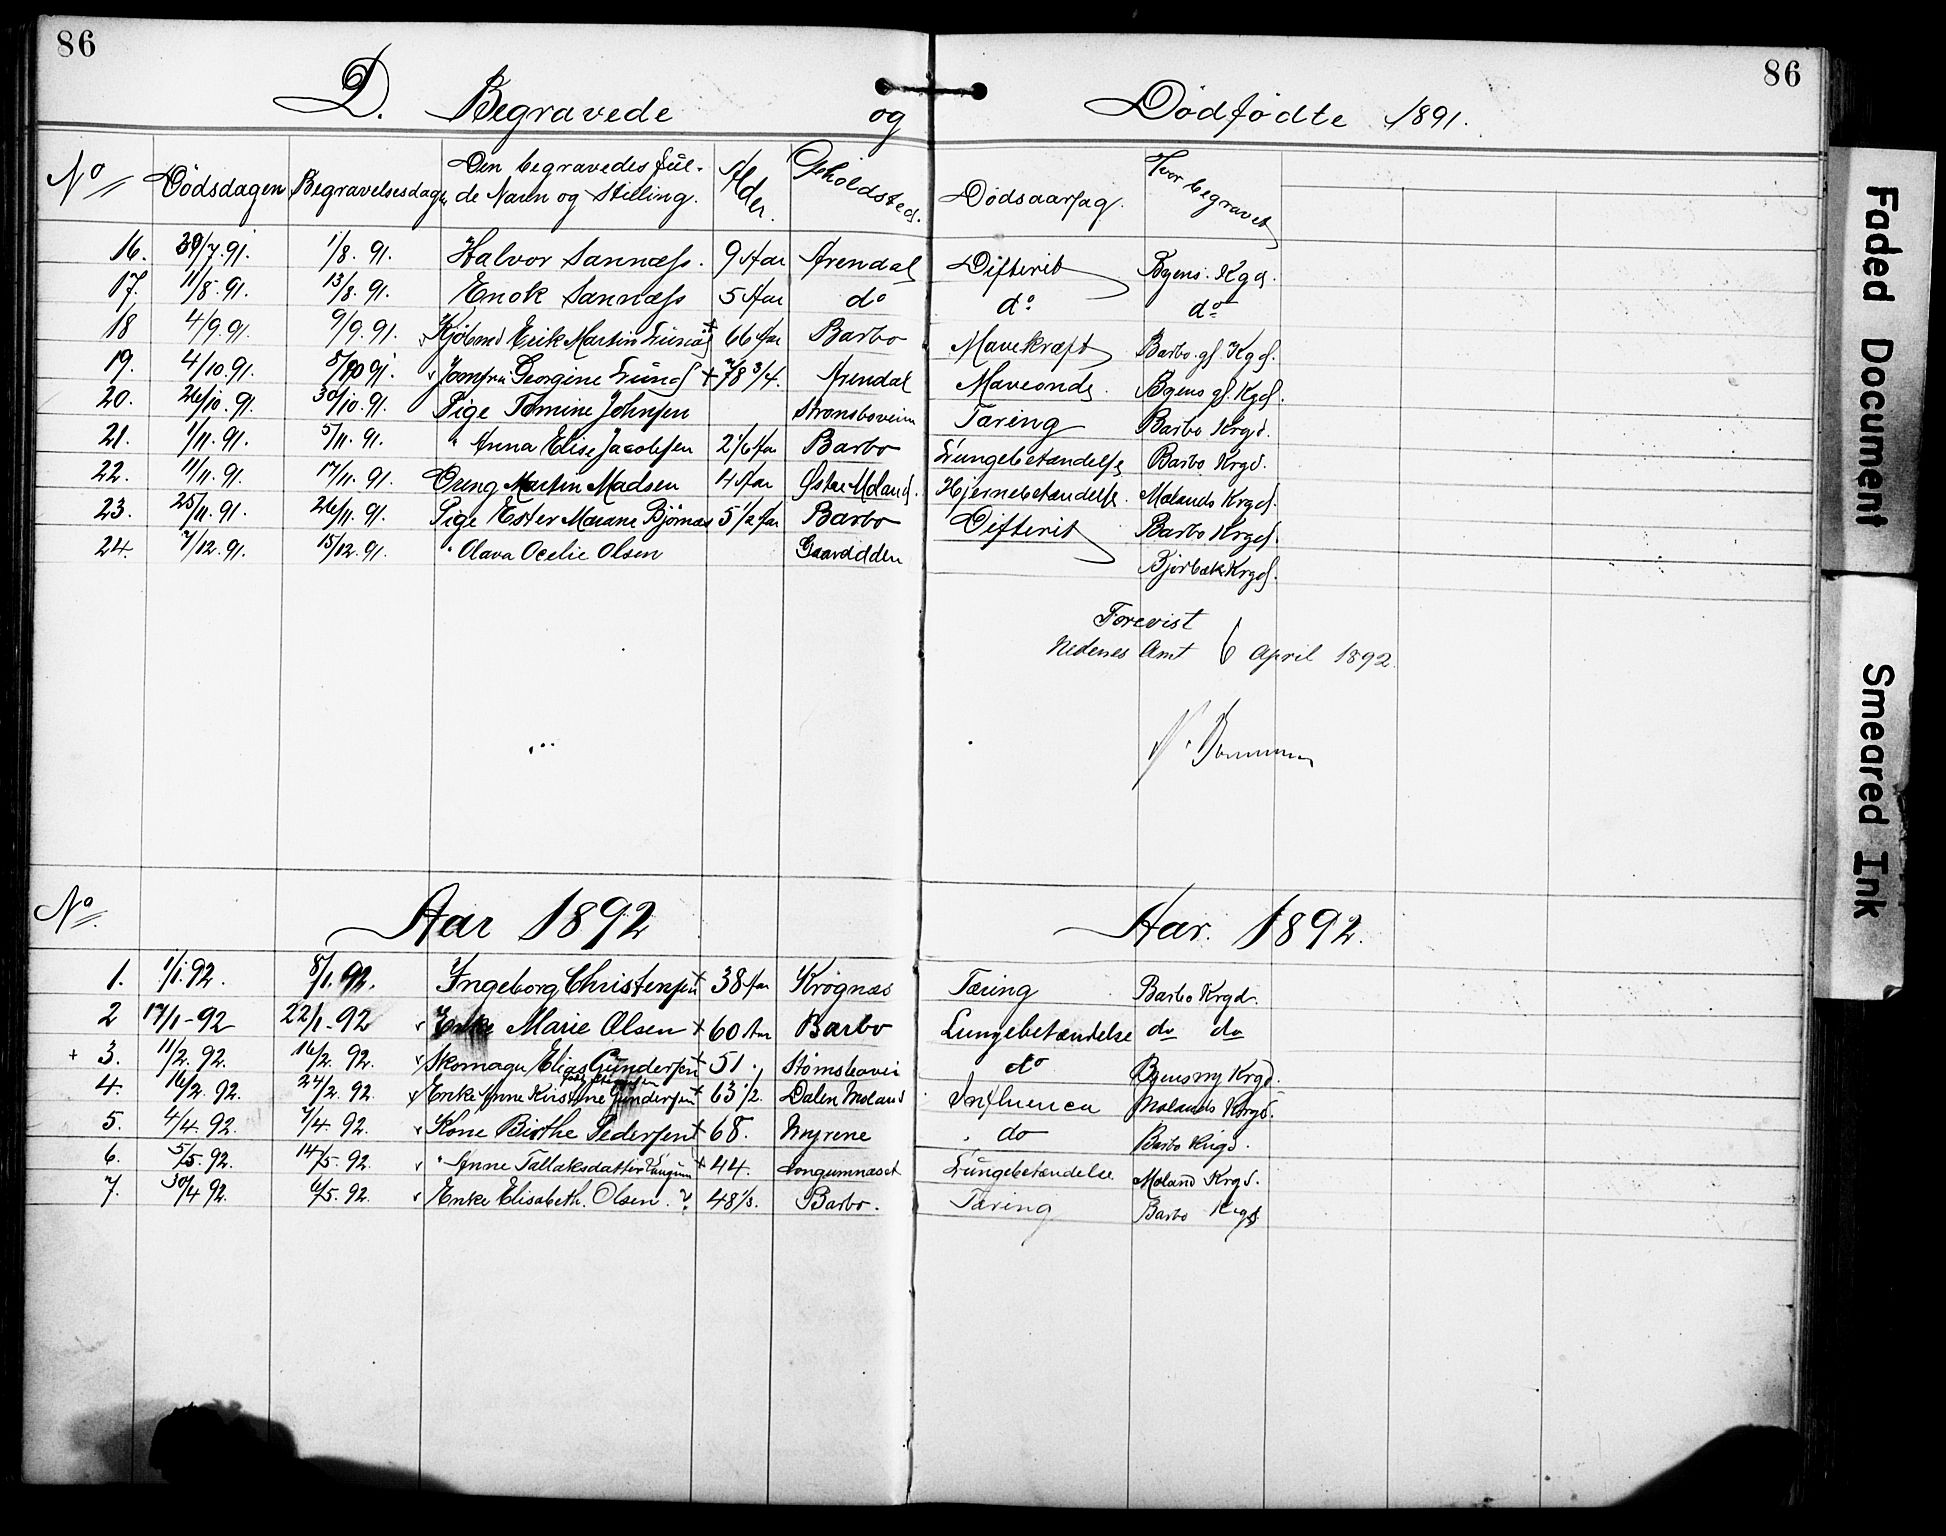 86
86
D. Begravede og Dødfødte 1891.
No Dødsdagen Begravelsesdage Den begravedes ful- Alder. Opholdsted. Dødsaarsag. Hvor begravet
de Navn og Stilling.
16. 30/7. 91. 1/8. 91. Halvor Sannæss. 9 Aar Arendal Difterit Byens. Kgd.
17. 11/8. 91. 13/8. 91. Enok Sannæss 5 Aar do do. do
18 4/9. 91. 9/9. 91. Kjøbmd Erik Martin 66 Aar Barbo Mavekræft Barbo gl. Kgd.
19. 4/10. 91. 8/10 91. Jomfru Georgine Lund + 78 3/4. Arendal Maveonde. Byens gl. Kgd.
20. 26/10. 91. 30/10. 91. Pige Tomine Johnsen Strømsboveien Tæring Barbo Krgd.
21. 1/11. 91. 5/11. 91. " Anna Elise Jacobsen 2 1/6 Aar Barbo Lungebetændelse Barbo Krgd.
22. 11/11. 91. 17/11. 91. Gung Martin Madsen 4 Aar Østre Moland. Hjernebetændelse. Molands Krgd.
23. 25/11. 91. 26/11. 91. Pige Ester Marane Bjørnæs 5 1/2 Aar Barbo Difterit Barbo Krgd.
24. 7/12. 91. 15/12. 91. " Olava Ocelie Olsen Bjorbæk Krgd.
Forevist
Nedenes Amt 6 April 1892.
No. Aar 1892 Aar. 1892.
1. 1/1. 92. 8/1. 92. Ingeborg Christensen + 38 Aar Krøgnæs Tæring Barbo Krgd.
2 17/1 - 92 22/1 - 92 v Enke Marie Olsen + 60 Aar Barbo Lungebetændelse do do
+ 3. 11/2. 92. 16/2. 92. v Skomager Elias Gundersen + 51. Strømsbovei do Byens ny Krgd.
4. 16/2. 92. 24/2. 92. v Enke Anne Kirstine Gundersen + 63 1/2. Dalen Moland Influenca Molands Krgd.
5. 4/4. 92. 7/4. 92. v Kone Birthe Pedersen + 68. Myrene do Barbo Krgd.
6. 5/5. 92. 14/5. 92. v " Anne Tallaksdatter Langum + 44. Longumnæset Lungebetændelse Moland Krgd.
7. 30/4 92. 6/5. 92. v Enke Elisabeth. Olsen. ? 48 1/3. Barbo. Tæring Barbo Krgd
Faded Document
Smeared Ink